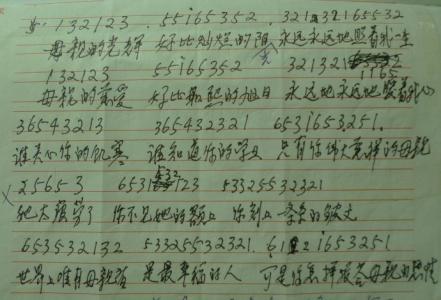 132123 . 55165352 . 321 32165532
母亲的光辉 好比灿烂的阳光 永远永远地照着我一生
132123 55165352 321321
母亲的慈爱 好比和熙的旭日 永远地永远地照着我心
36543213 365432321 6531653251.
谁关心你的饥寒 谁知道你的学业 只有你伟大慈祥的母亲
X 25653 6531 123 53325532321
她太疲劳了 你不见她的额上 你刻上一条条的皱文
6535532132 53325532321. 61 21653251
世界上唯有母亲 是最幸福的人 可是你怎样报答母亲的恩情